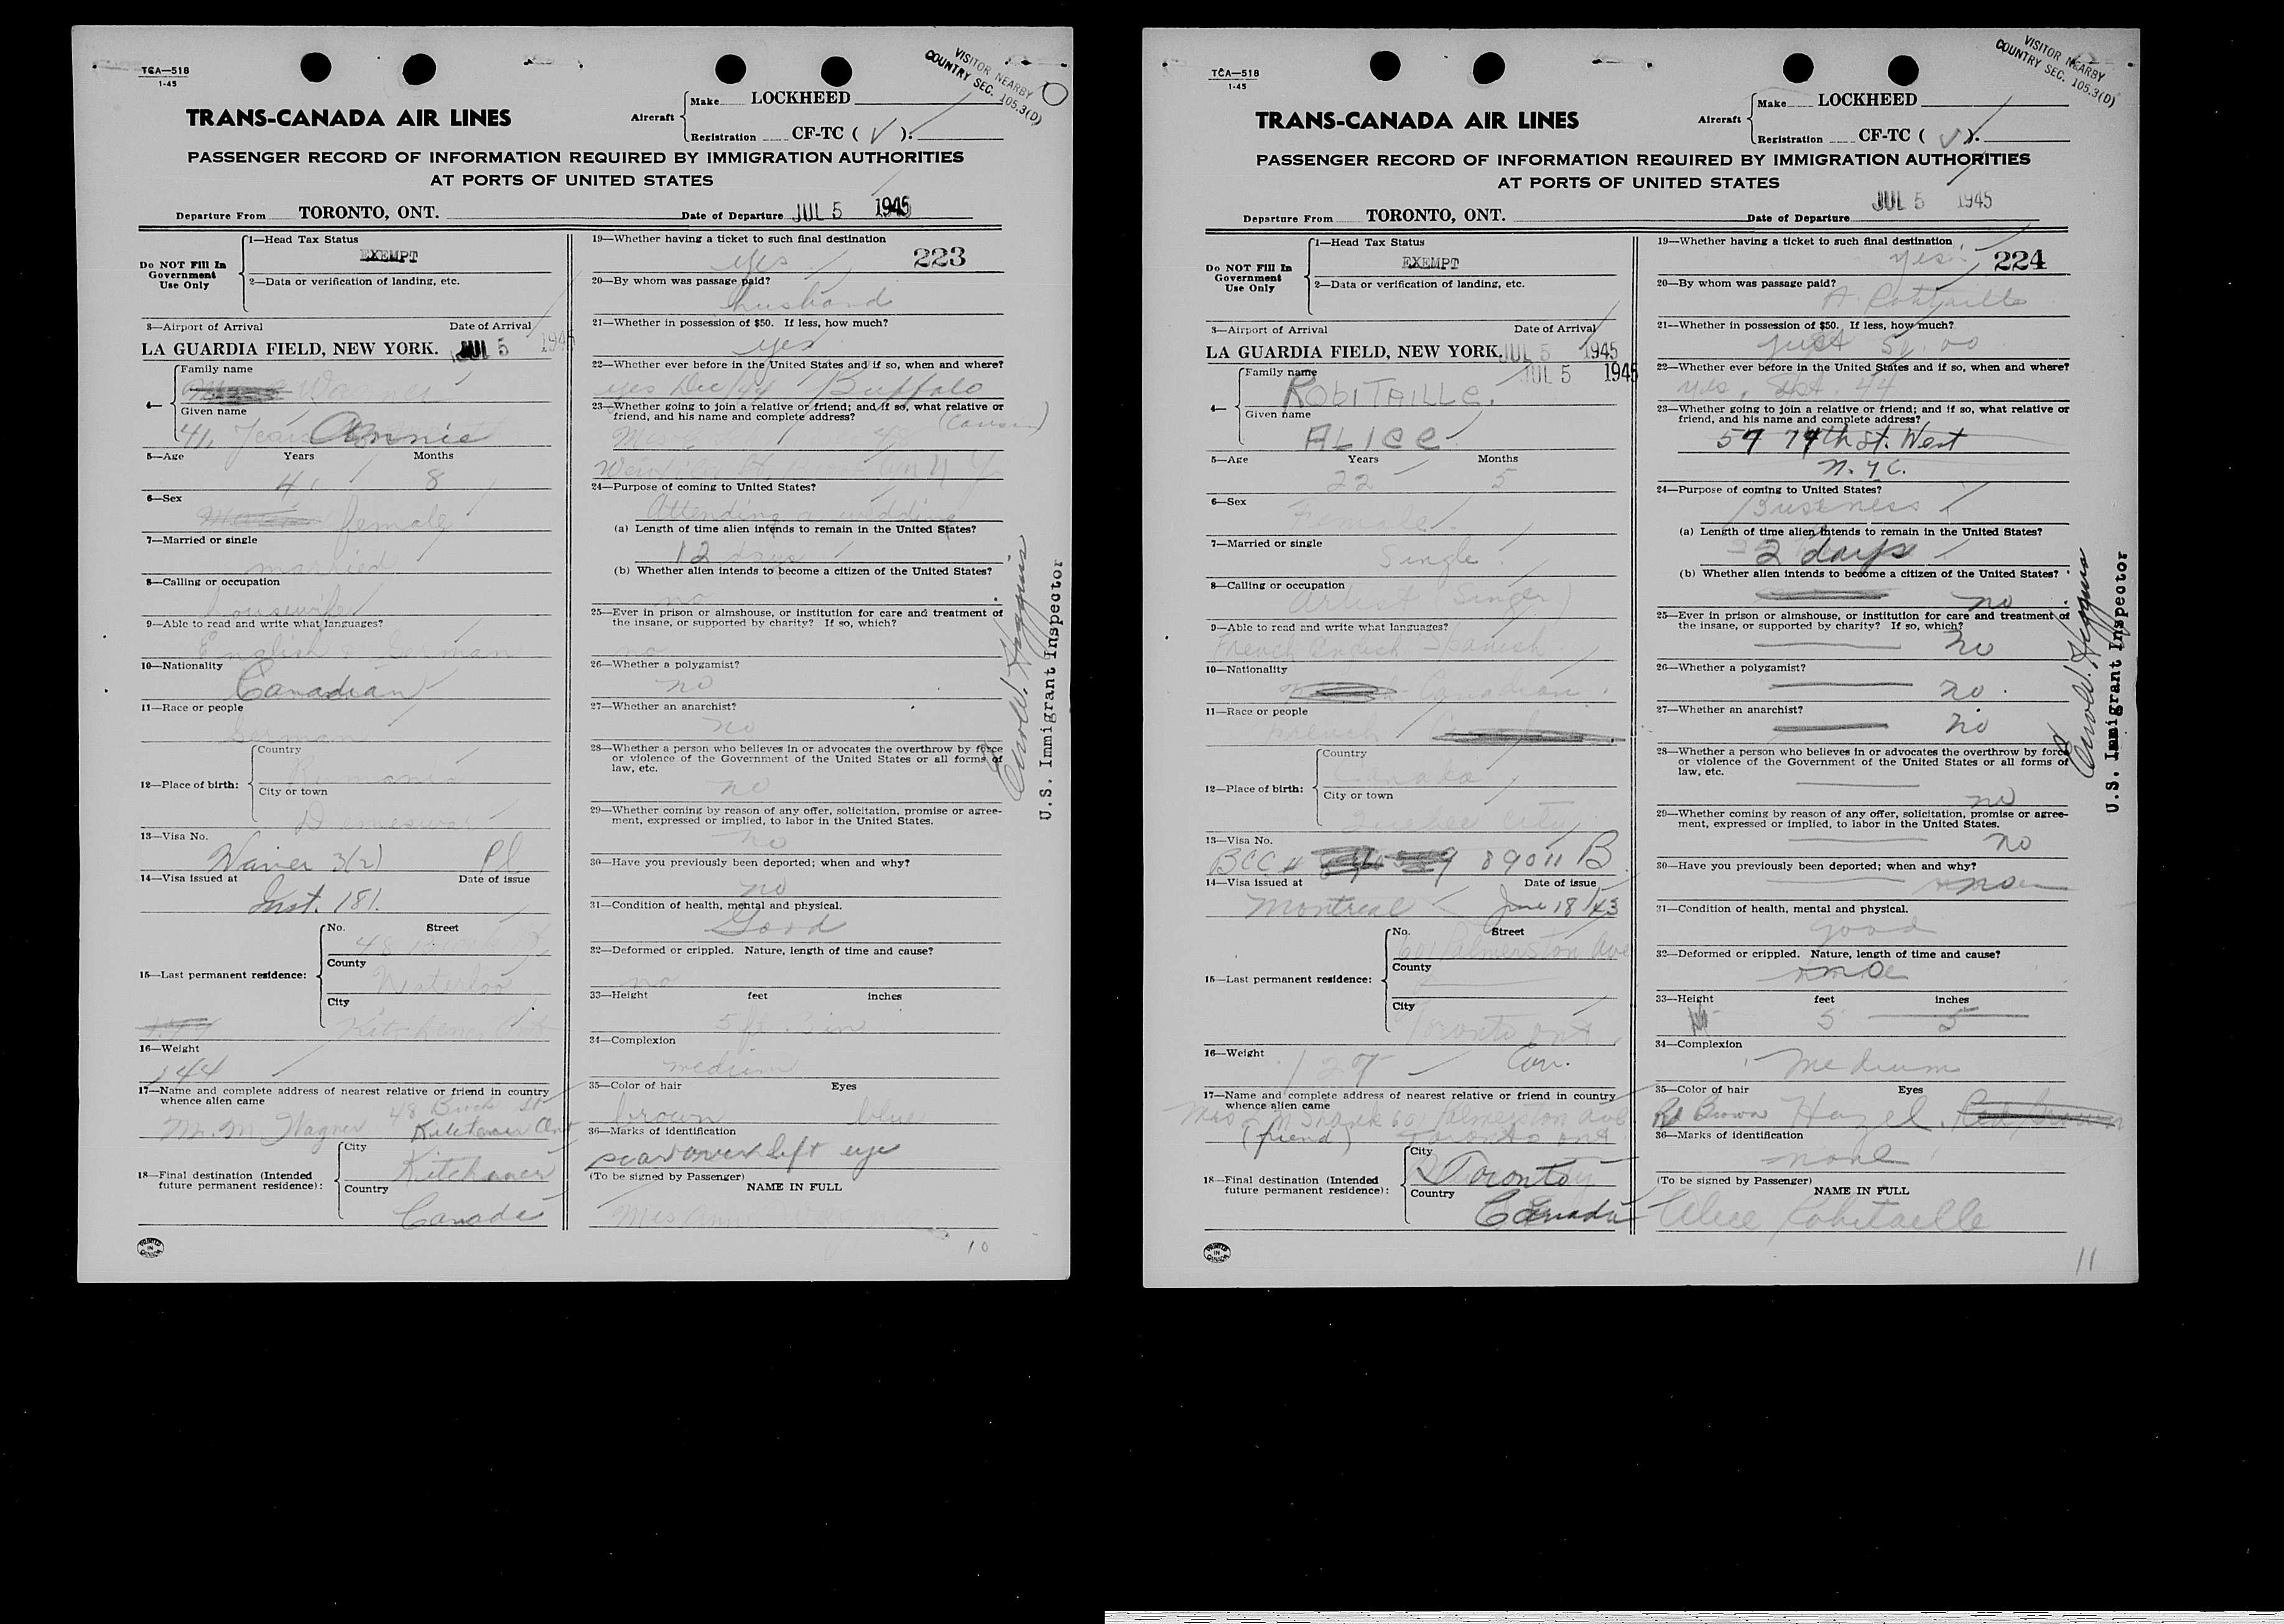 TCA—518
1-45
VISITOR NEARBY
COUNTRY SEC. 105.3(D)
TRANS-CANADA AIR LINES
Aircraft
Make LOCKHEED
Registration CF-TC ( V ).
PASSENGER RECORD OF INFORMATION REQUIRED BY IMMIGRATION AUTHORITIES
AT PORTS OF UNITED STATES
Departure From TORONTO, ONT. Date of Departure JUL 5 1945
Do NOT Fill In Government Use Only
1—Head Tax Status
EXEMPT
2—Data or verification of landing, etc.
3—Airport of Arrival Date of Arrival
LA GUARDIA FIELD, NEW YORK. JUL 5 1945
4—
Family name
Wagner
Given name
41 Years Annie
5—Age Years Months
41 8
6—Sex
female
7—Married or single
married
8—Calling or occupation
housewife
9—Able to read and write what languages?
English & German
10—Nationality
Canadian
11—Race or people
German
12—Place of birth:
Country
Rumania
City or town
13—Visa No.
Waiver 3(2) Pl
14—Visa issued at Date of issue
Inst. 181.
15—Last permanent residence:
No. Street
48
County
Waterloo
City
Kitchener Ont
16—Weight
144
17—Name and complete address of nearest relative or friend in country
whence alien came
48 St
Mr. M. Wagner Kitchener Ont
18—Final destination (Intended
future permanent residence):
City
Kitchener
Country
Canada
PRINTED IN CANADA
19—Whether having a ticket to such final destination
yes 223
20—By whom was passage paid?
husband
21—Whether in possession of $50. If less, how much?
yes
22—Whether ever before in the United States and if so, when and where?
yes Dec/44 Buffalo
23—Whether going to join a relative or friend; and if so, what relative or
friend, and his name and complete address?
(Cousin)
24—Purpose of coming to United States?
Attending a wedding
(a) Length of time alien intends to remain in the United States?
12 days
(b) Whether alien intends to become a citizen of the United States?
no
25—Ever in prison or almshouse, or institution for care and treatment of
the insane, or supported by charity? If so, which?
no
26—Whether a polygamist?
no
27—Whether an anarchist?
no
28—Whether a person who believes in or advocates the overthrow by force
or violence of the Government of the United States or all forms of
law, etc.
no
29—Whether coming by reason of any offer, solicitation, promise or agree-
ment, expressed or implied, to labor in the United States.
no
30—Have you previously been deported; when and why?
no
31—Condition of health, mental and physical.
Good
32—Deformed or crippled. Nature, length of time and cause?
no
33—Height feet inches
5 ft. 3 in
34—Complexion
medium
35—Color of hair Eyes
brown blue
36—Marks of identification
scar over left eye
(To be signed by Passenger)
NAME IN FULL
Mrs Annie Wagner
10
U.S. Immigrant Inspector
TCA—518
1-45
VISITOR NEARBY
COUNTRY SEC. 105.3(D)
TRANS-CANADA AIR LINES
Aircraft
Make LOCKHEED
Registration CF-TC ( V ).
PASSENGER RECORD OF INFORMATION REQUIRED BY IMMIGRATION AUTHORITIES
AT PORTS OF UNITED STATES
Departure From TORONTO, ONT. Date of Departure JUL 5 1945
Do NOT Fill In Government Use Only
1—Head Tax Status
EXEMPT
2—Data or verification of landing, etc.
3—Airport of Arrival Date of Arrival
LA GUARDIA FIELD, NEW YORK. JUL 5 1945
JUL 5 1945
4—
Family name
ROBITAILLE.
Given name
ALICE
5—Age Years Months
22 5
6—Sex
Female
7—Married or single
Single
8—Calling or occupation
Artist (Singer)
9—Able to read and write what languages?
French English Spanish
10—Nationality
Canadian
11—Race or people
French
12—Place of birth:
Country
Canada
City or town
Quebec City
13—Visa No.
BCC # 89011 B
14—Visa issued at Date of issue
Montreal June 18/43
15—Last permanent residence:
No. Street
601 Palmerston Ave
County
City
Toronto Ont
16—Weight
129 Can.
17—Name and complete address of nearest relative or friend in country
whence alien came
Mrs M 601 Palmerston Ave
(friend) Toronto Ont
18—Final destination (Intended
future permanent residence):
City
Toronto
Country
Canada
PRINTED IN CANADA
19—Whether having a ticket to such final destination
yes 224
20—By whom was passage paid?
A. Robitaille
21—Whether in possession of $50. If less, how much?
just 50.00
22—Whether ever before in the United States and if so, when and where?
yes, Sept. 44
23—Whether going to join a relative or friend; and if so, what relative or
friend, and his name and complete address?
57 74th St. West
N.Y.C.
24—Purpose of coming to United States?
Business
(a) Length of time alien intends to remain in the United States?
2 days
(b) Whether alien intends to become a citizen of the United States?
no
25—Ever in prison or almshouse, or institution for care and treatment of
the insane, or supported by charity? If so, which?
no
26—Whether a polygamist?
no
27—Whether an anarchist?
no
28—Whether a person who believes in or advocates the overthrow by force
or violence of the Government of the United States or all forms of
law, etc.
no
29—Whether coming by reason of any offer, solicitation, promise or agree-
ment, expressed or implied, to labor in the United States.
no
30—Have you previously been deported; when and why?
31—Condition of health, mental and physical.
Good
32—Deformed or crippled. Nature, length of time and cause?
33—Height feet inches
5 5
34—Complexion
Medium
35—Color of hair Eyes
Rd Brown Hazel
36—Marks of identification
none
(To be signed by Passenger)
NAME IN FULL
Alice Robitaille
11
U.S. Immigrant Inspector